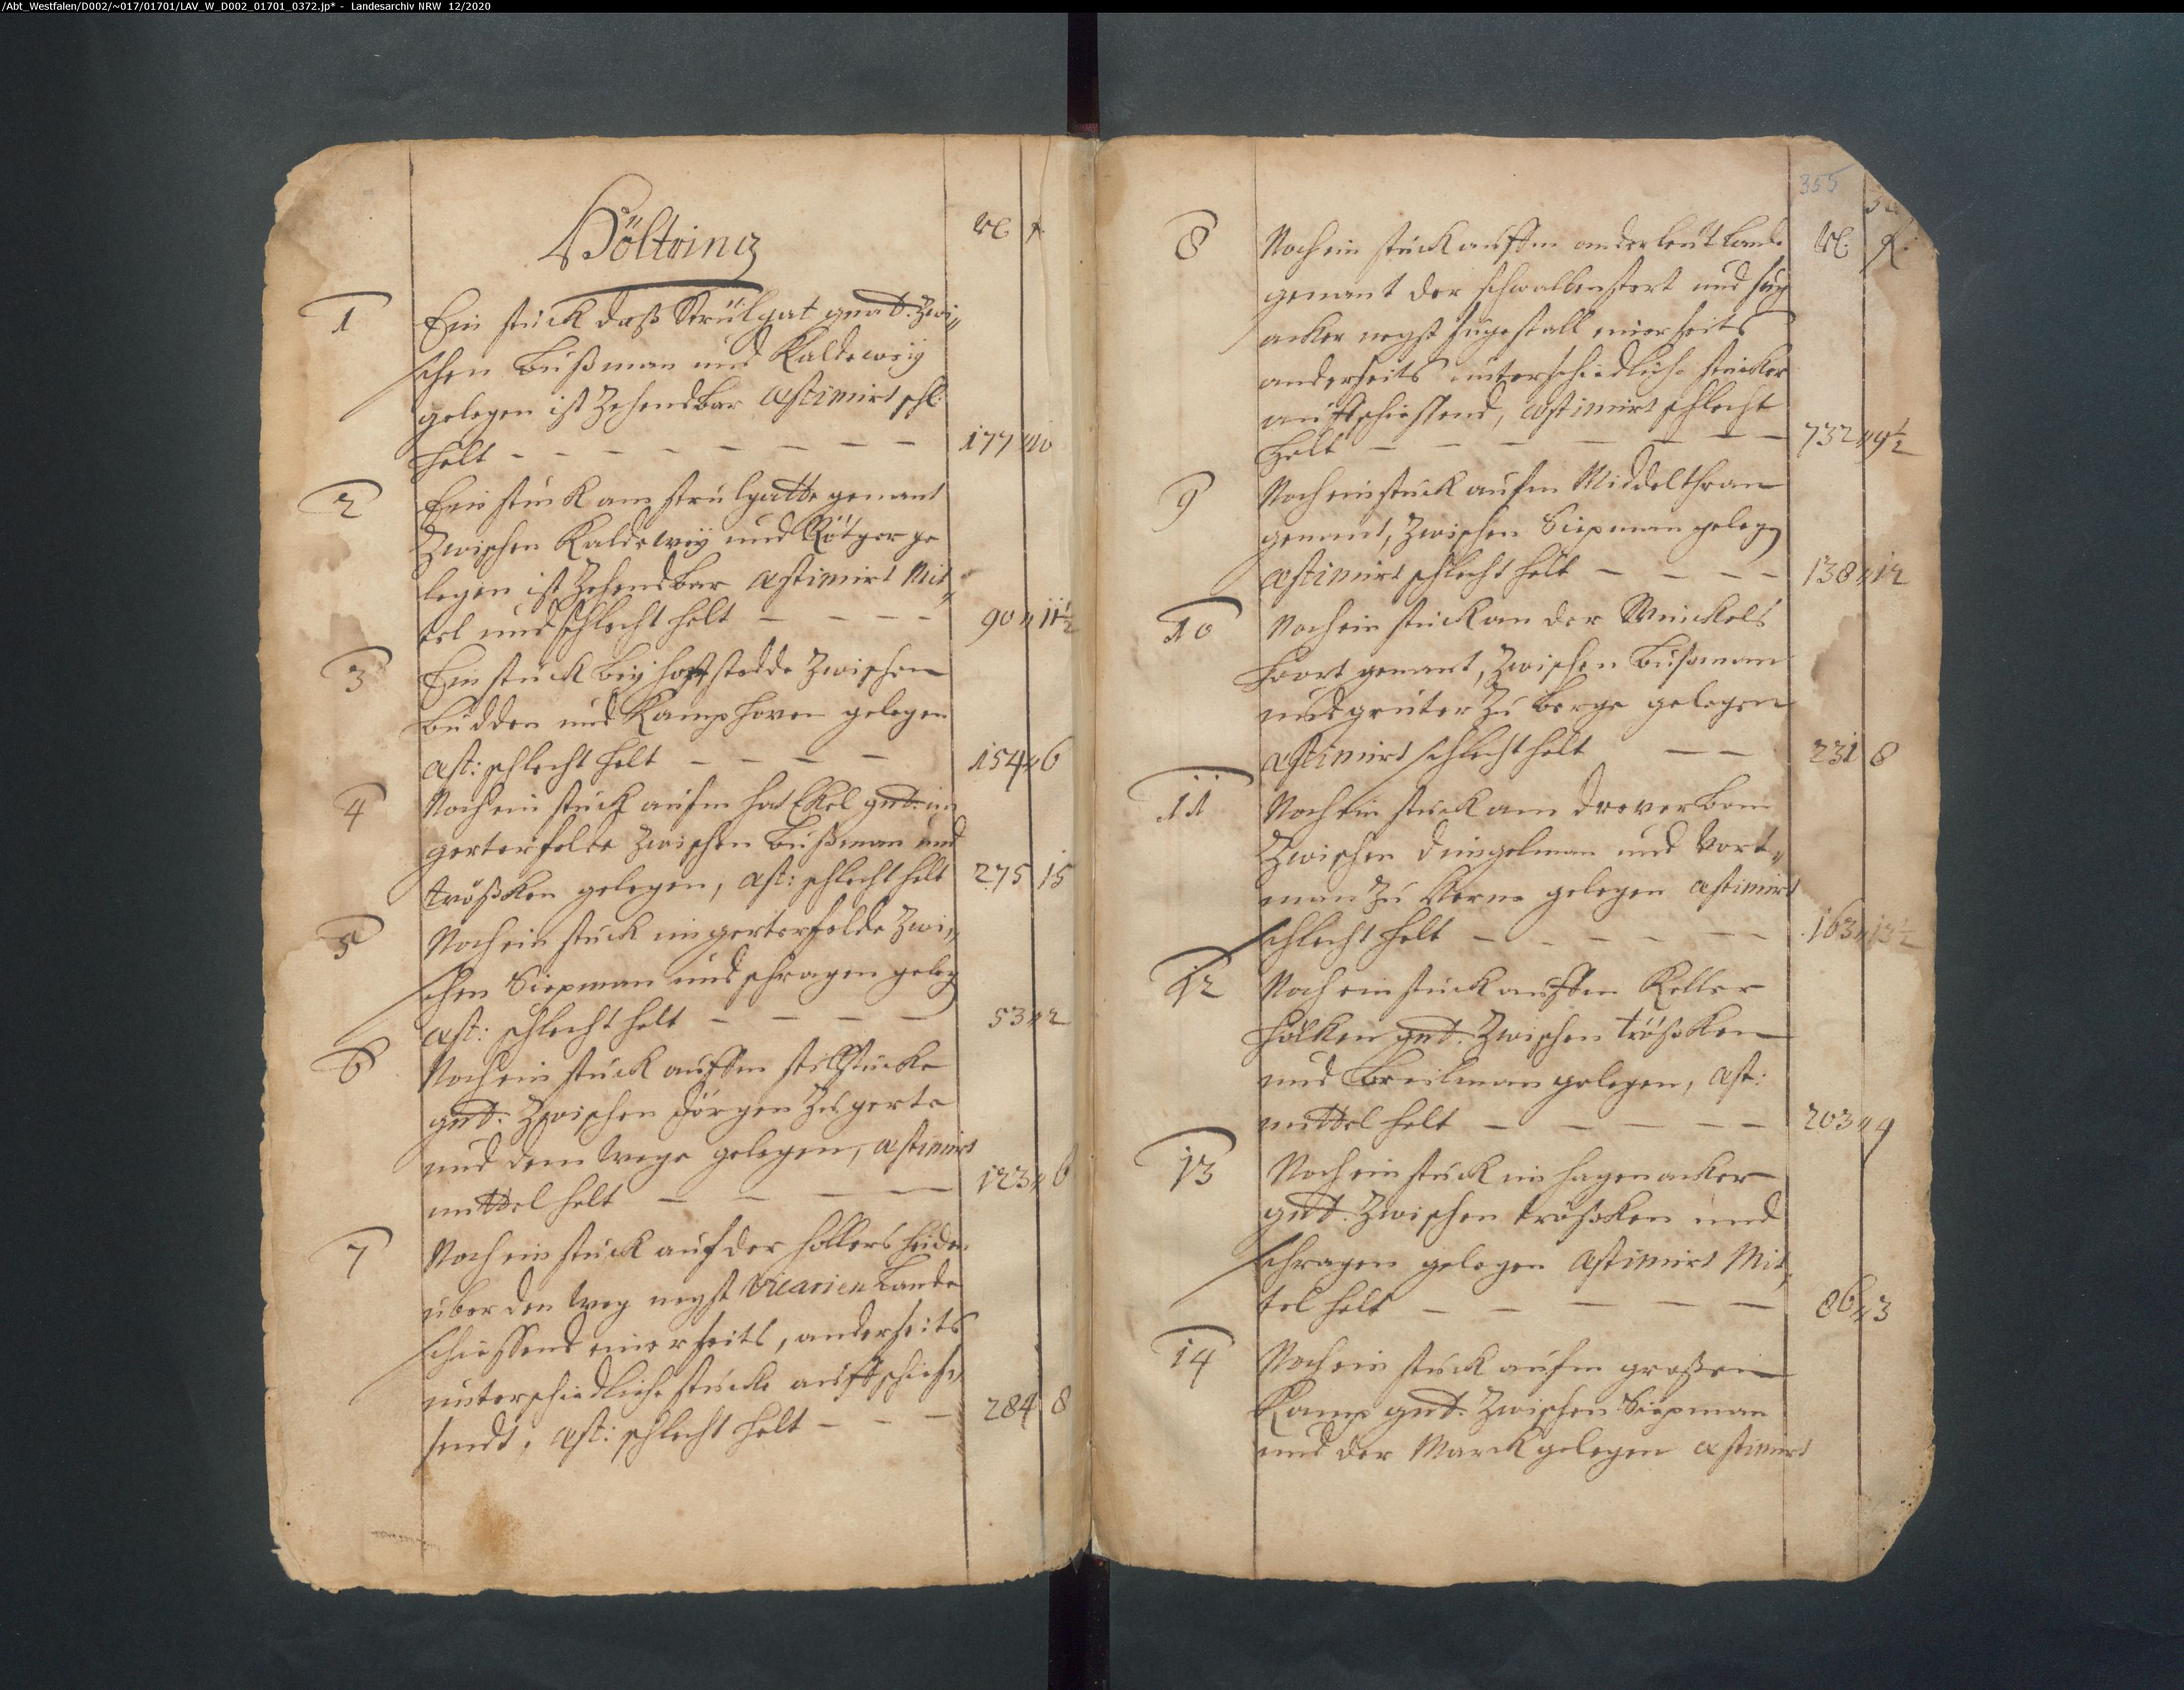 /Abt_Westfalen/D002/~017/01701/LAV_W_D002_01701_0372.jp* - Landesarchiv NRW 12/2020
Höltring
1 Ein stück daß Strülgat gnadt. Zwi„
schen Bußman und Kaldeweÿ
gelegen ist Zehendbar æstimirt schl:
helt 177 „ 10
2 Ein stück am strulgatte genant
Zwischen Kaldeweÿ und Rötger ge
legen ist Zehendbar æstimirt Mit„
tel und schlecht helt 90 „ 11½
3 Ein stück beÿ hoffstedde Zwischen
Budden und Kamphoven gelegen
æst: schlecht helt 154 „ 6
4 Noch ein stück aufm gnt. im
gerterfelde Zwischen Bußman und
trößken gelegen, æst: schlecht helt 275 15
5 Noch ein stück im gerterfelde Zwi„
schen Siepman und schragen geleg
æst: schlecht helt 53 „ 2
6 Noch ein stück auffm stillstucke
gnt. Zwischen Jörgen Zu gerte
und dem wege gelegen, æstimirt
mittel helt 123 „ 6
7 Noch ein stück auf der hollersheide
uber den weg negst Vicarien Lande
schiessend einerseits, anderseits
unterschiedliche stucke auffschies„
sendt, æst: schlecht helt 284 8
355
8 Noch ein stück auffm anderleut Lande
genant der schwalbenstert und
acker negst einerseits
anderseits unterschiedliche stücker
auffschiessend, æstimirt schlecht
helt 732 „ 9½
9 Noch ein stück aufm Middelthran
genant, Zwischen Siepman gelegen
æstimirt schlecht helt 138 „ 12
10 Noch ein stück an der Winckels
foort genant, Zwischen Bußman
und gruter Zu Berge gelegen
æstimirt schlecht helt 231 8
11 Noch ein stück am dreverbom
Zwischen Dungelman und Vort„
man Zu gelegen æstimirt
schlecht helt 163 „ 13½
12 Noch ein stück auffm Keller
gnt. Zwischen trößken
und Breilman gelegen, æst:
mittel helt 203 „ 4
13 Noch ein stück im hagenacker
gnt. Zwischen trößken und
schragen gelegen æstimirt Mit„
tel helt 86 „ 3
14 Noch ein stück aufm großen
Kamp gnt. Zwischen Siepman
und der Marck gelegen æstimirt